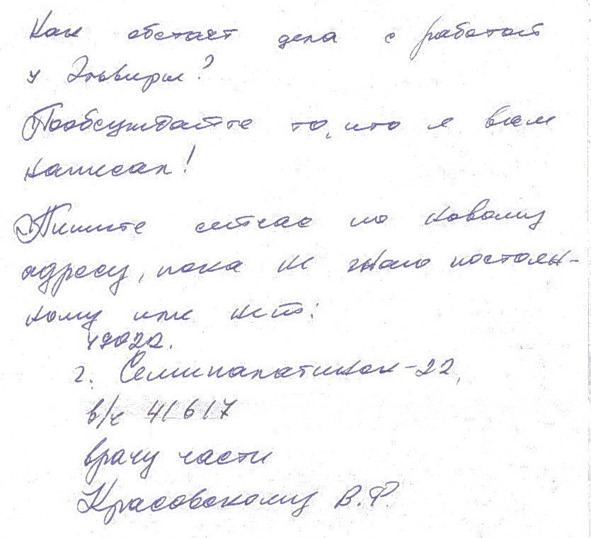 Как обстоят дела с работой
у Эльвиры?
Пообсуждайте то, что я вам
написал!
Пишите сейчас по новому
адресу, пока не знаю постоян-
ному или нет:
г. Семипалатинск-22,
в/ч 41617
врачу части
Красовскому В.Ф.